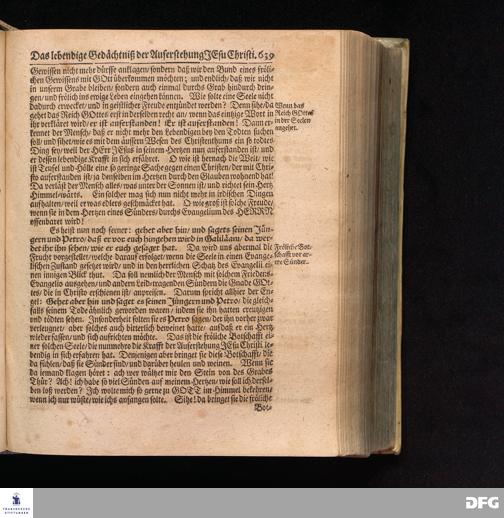 Das lebendige Gedächtniß der Auferstehung JEsu Christi. 639
Gewissen nicht mehr dürffe anklagen/ sondern daß wir den Bund eines fröli-
chen Gewissens mit GOtt überkommen möchten; und endlich/ daß wir nicht
in unserm Grabe bleiben/ sondern auch einmal durchs Grab hindurch drin-
gen/ und frölich ins ewige Leben eingehen können. Wie solte eine Seele nicht
dadurch erweckt/ und in geistlicher Freude entzündet werden? Denn sihe/ da
gehet das Reich GOttes erst in derselben recht an/ wenn das eintzige Wort in
ihr verkläret wird/ er ist auferstanden! Er ist auferstanden! Dann er-
kennet der Mensch/ daß er nicht mehr den Lebendigen bey den Todten suchen
soll/ und sihet/ wie es mit dem äussern Wesen des Christenthums ein so todtes
Ding sey/ weil der HErr JEsus in seinem Hertzen nun auferstanden ist/ und
er dessen lebendige Krafft in sich erfähret. O wie ist hernach die Welt/ wie
ist Teufel und Hölle eine so geringe Sache gegen einen Christen/ der mit Chri-
sto auferstanden ist/ ja denselben im Hertzen durch den Glauben wohnend hat!
Da verläst der Mensch alles/ was unter der Sonnen ist/ und richtet sein Hertz
Himmel-wärts. Ein solcher mag sich nun nicht mehr in irdischen Dingen
aufhalten/ weil er was edlers geschmäcket hat. O wie groß ist solche Freude/
wenn sie in dem Hertzen eines Sünders/ durchs Evangelium des HERRN
offenbaret wird!
Wenn das
Reich GOttes
in der Seelen
angehet.
Es heist nun noch ferner: gehet aber hin/ und sagets seinen Jün-
gern und Petro/ daß er vor euch hingehen wird in Galiläam/ da wer-
det ihr ihn sehen/ wie er euch gesaget hat. Da wird uns abermal die
Frucht vorgestellet/ welche darauf erfolget/ wenn die Seele in einen Evange-
lischen Zustand gesetzet wird/ und in den herrlichen Schatz des Evangelii ei-
nen innigen Blick thut. Da soll nemlich der Mensch mit solchem Friedens-
Evangelio ausgehen/ und andern Leid-tragenden Sündern die Gnade GOt-
tes/ die in Christo erschienen ist/ anpreisen. Darum spricht allhier der En-
gel: Gehet aber hin und saget es seinen Jüngern und Petro/ die gleich-
falls seinem Tode ähnlich geworden waren/ indem sie ihn hatten creutzigen
und tödten sehen. Insonderheit solten sie es Petro sagen/ der ihn vorher zwar
verleugnet/ aber solches auch bitterlich beweinet hatte/ auf daß er ein Hertz
wieder fassen/ und sich aufrichten möchte. Das ist die fröliche Botschafft ei-
ner solchen Seele/ die nunmehro die Krafft der Auferstehung JEsu Christi le-
bendig in sich erfahren hat. Denjenigen aber bringet sie diese Botschafft/ die
da fühlen/ daß sie Sünder sind/ und darüber heulen und weinen. Wenn sie
da iemand klagen höret: ach wer wältzet mir den Stein von des Grabes
Thür? Ach! ich habe so viel Sünden auf meinem Hertzen/ wie soll ich derselben
los werden? Ich wolte mich so gerne zu GOTT im Himmel bekehren/
wenn ich nur wüste/ wie ichs anfangen solte. Sihe! da bringet sie die fröliche
Fröliche Bot-
schafft vor ar-
me Sünder.
Bot-
FRANCKESCHE
STIFTUNGEN
DFG